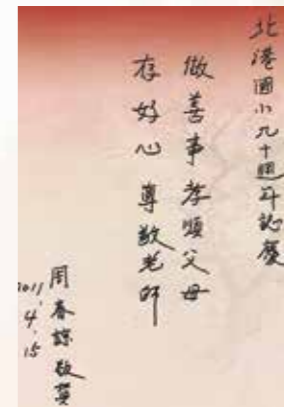 北港國小九十週年誌慶
做善事孝順父母
存好心尊敬老師
周春 敬
2011.4.15